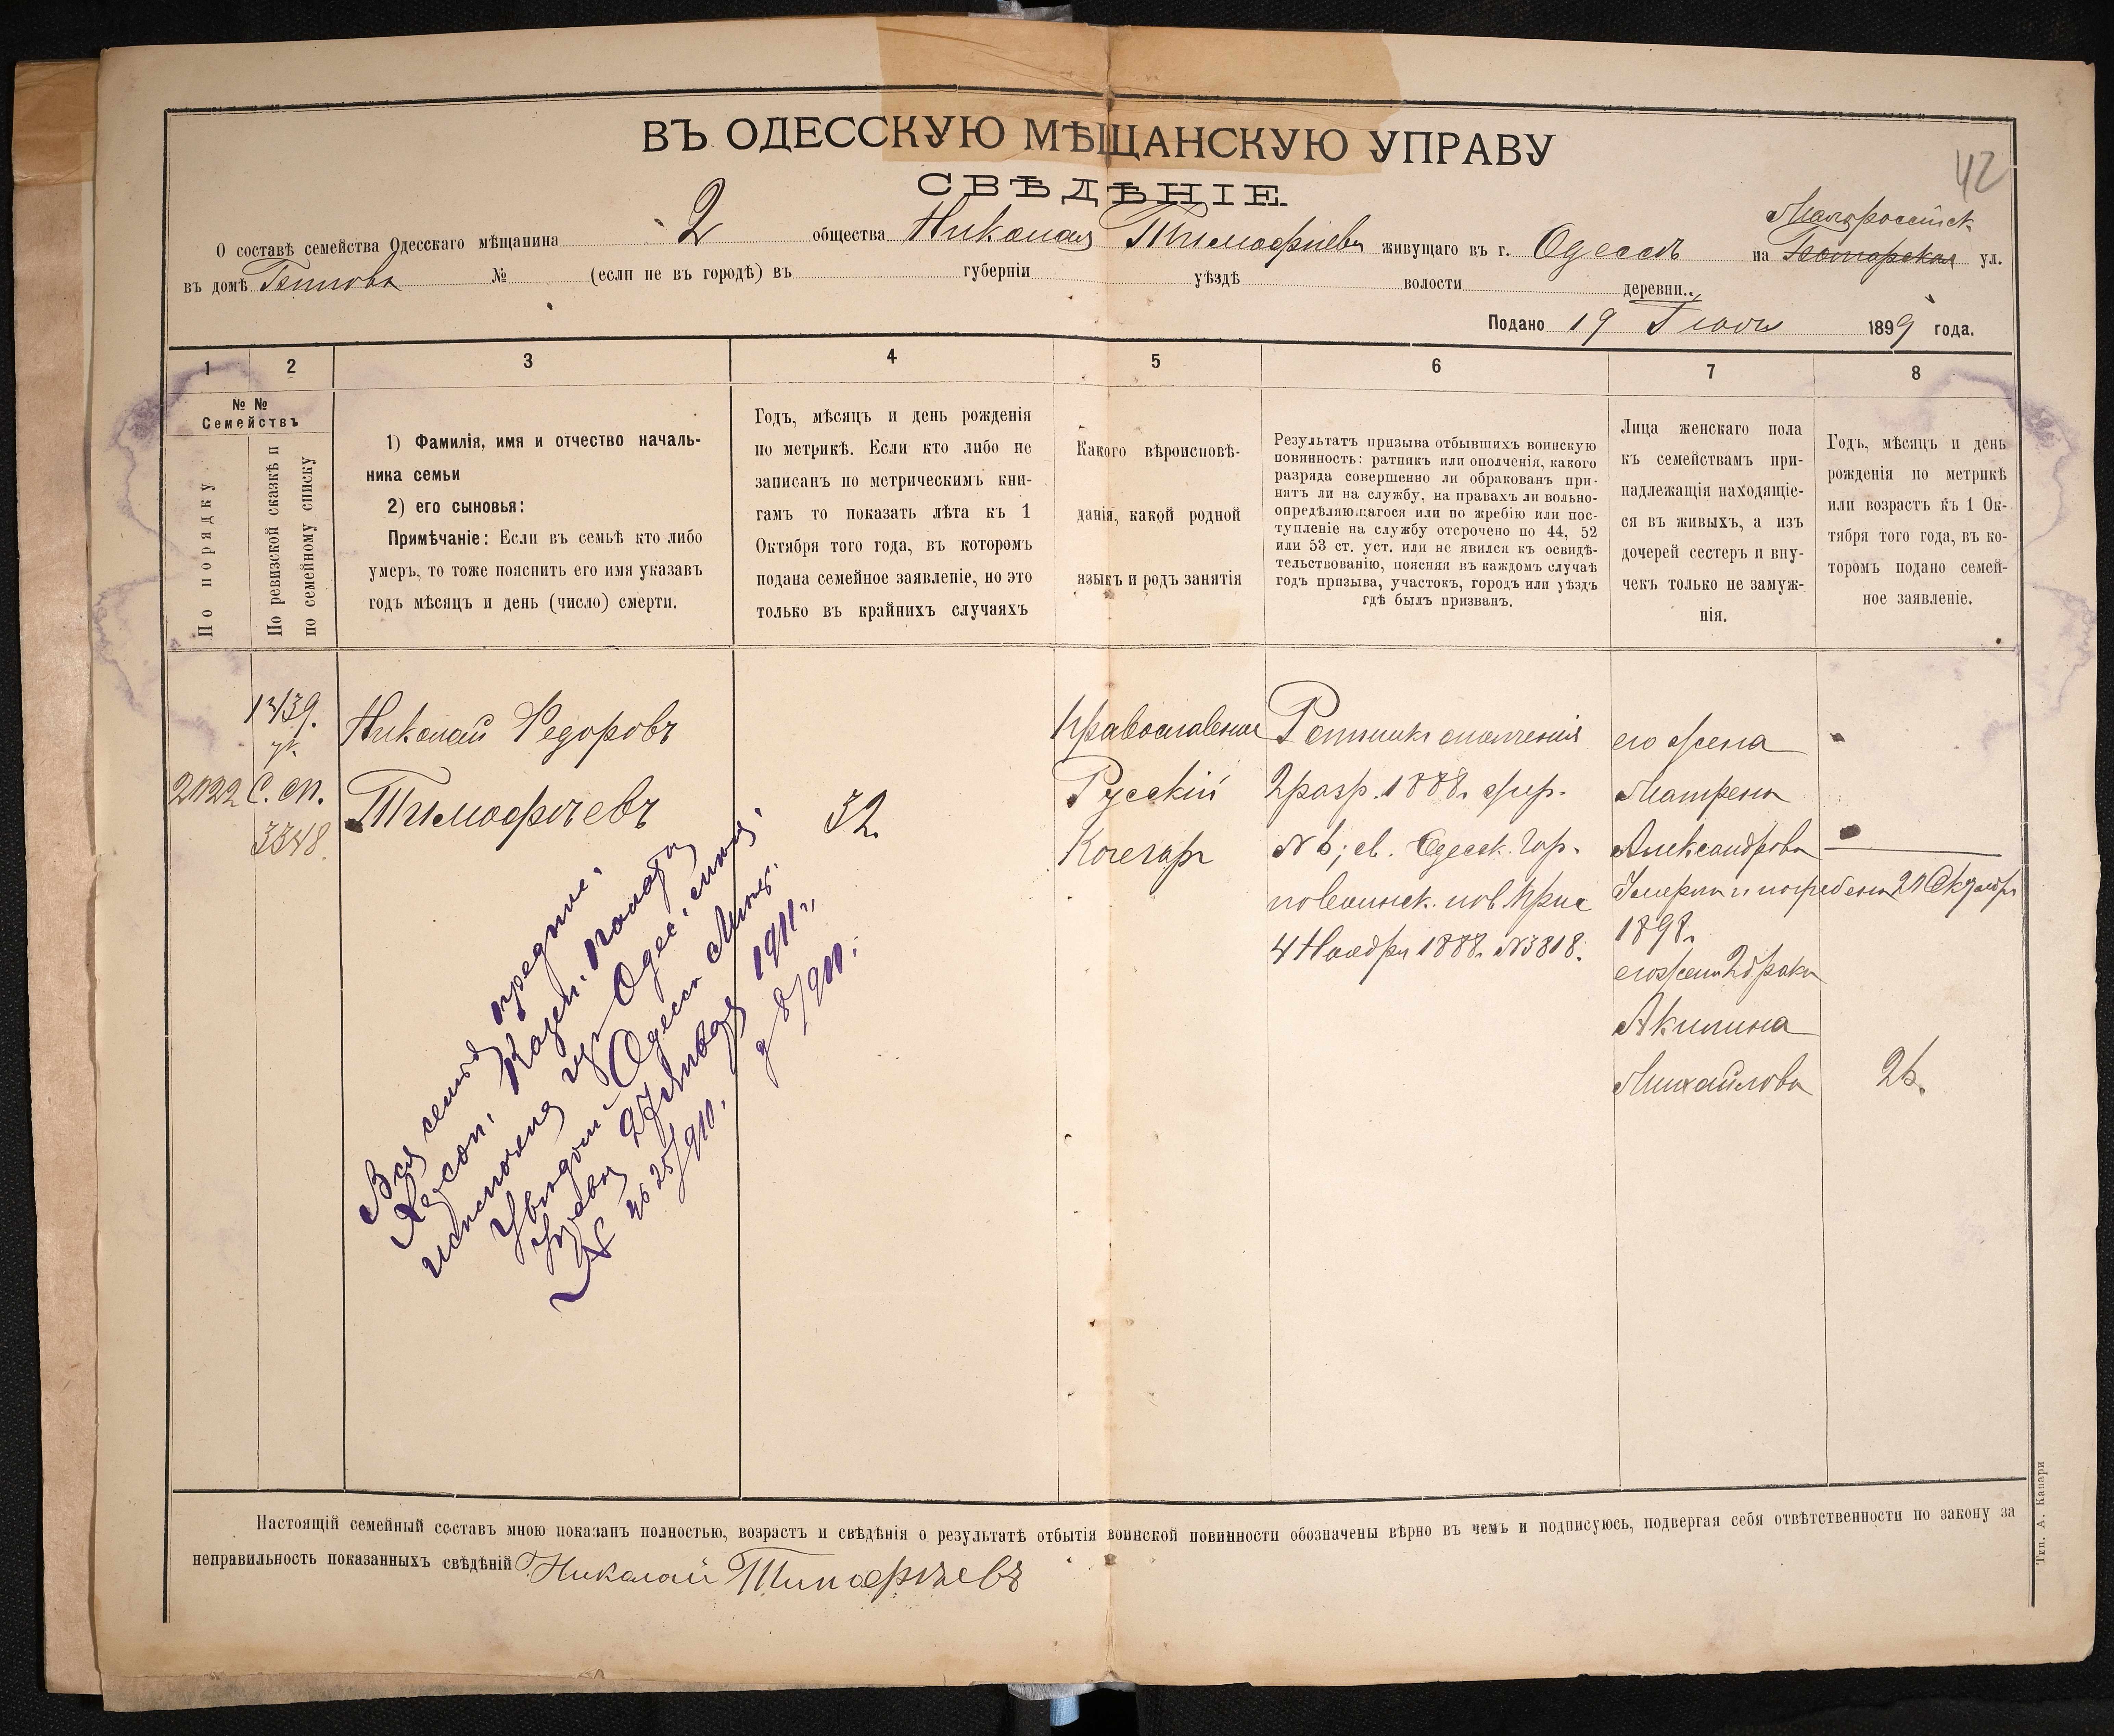 42
ВЪ ОДЕССКУЮ МѢЩАНСКУЮ УПРАВУ
СВѢДѢНІЕ.
Малороссійск.
О составѣ семейства Одесскаго мѣщанина 2 общества Николая Тимофѣева живущаго въ г. Одессѣ на ул.
въ домѣ № (если не въ городѣ) въ губерніи уѣздѣ волости деревни
Подано 19 1899 года.
1 2 3 4 5 6 7 8
№ №
Семействъ
По порядку
По ревизской сказкѣ и
по семейному списку
1) Фамилія, имя и отчество началь-
ника семьи
2) его сыновья:
Примѣчаніе: Если въ семьѣ кто либо
умеръ, то тоже пояснить его имя указавъ
годъ мѣсяцъ и день (число) смерти.
Годъ, мѣсяцъ и день рожденія
по метрикѣ. Если кто либо не
записанъ по метрическимъ кни-
гамъ то показать лѣта къ 1
Октября того года, въ которомъ
подана семейное заявленіе, но это
только въ крайнихъ случаяхъ
Какого вѣроисповѣ-
данія, какой родной
языкъ и родъ занятія
Результатъ призыва отбывшихъ воинскую
повинность: ратникъ или ополченія, какого
разряда совершенно ли обракованъ при-
нятъ ли на службу, на правахъ ли вольно-
опредѣляющагося или по жребію или пос-
тупленіе на службу отсрочено по 44, 52
или 53 ст. уст. или не явился къ освидѣ-
тельствованію, поясняя въ каждомъ случаѣ
годъ призыва, участокъ, городъ или уѣздъ
гдѣ былъ призванъ.
Лица женскаго пола
къ семействамъ при-
надлежащія находящіе-
ся въ живыхъ, а изъ
дочерей сестеръ и вну-
чекъ только не замуж-
нія.
Годъ, мѣсяцъ и день
рожденія по метрикѣ
или возрастъ къ 1 Ок-
тября того года, въ ко-
торомъ подано семей-
ное заявленіе.
С. сп.
3348.
Николай Федоровъ
Тимофѣевъ
32.
Православные
Русскій
Кочегаръ
Ратникъ ополченія
2 разр. 1888г.
Одесск. Гор.
по воинск. пов. Прис
4 Ноября 1888г. №3818.
его жена
Матрена
Александрова
Умерла и погребена 21 Октября
1898г.
его жена 2 брака
Акилина
Михайлова
26.
Вся семья
Херсон. Казен. Палаты
исключена изъ Одес.
Одесск. Мѣщ.
Управы 1911г.,
№
Настоящій семейный составъ мною показанъ полностью, возрастъ и свѣдѣнія о результатѣ отбытія воинской повинности обозначены вѣрно въ чемъ и подписуюсь, подвергая себя отвѣтственности по закону за
неправильность показанныхъ свѣдѣній Николай Тимофѣевъ
Тип. А. Капари